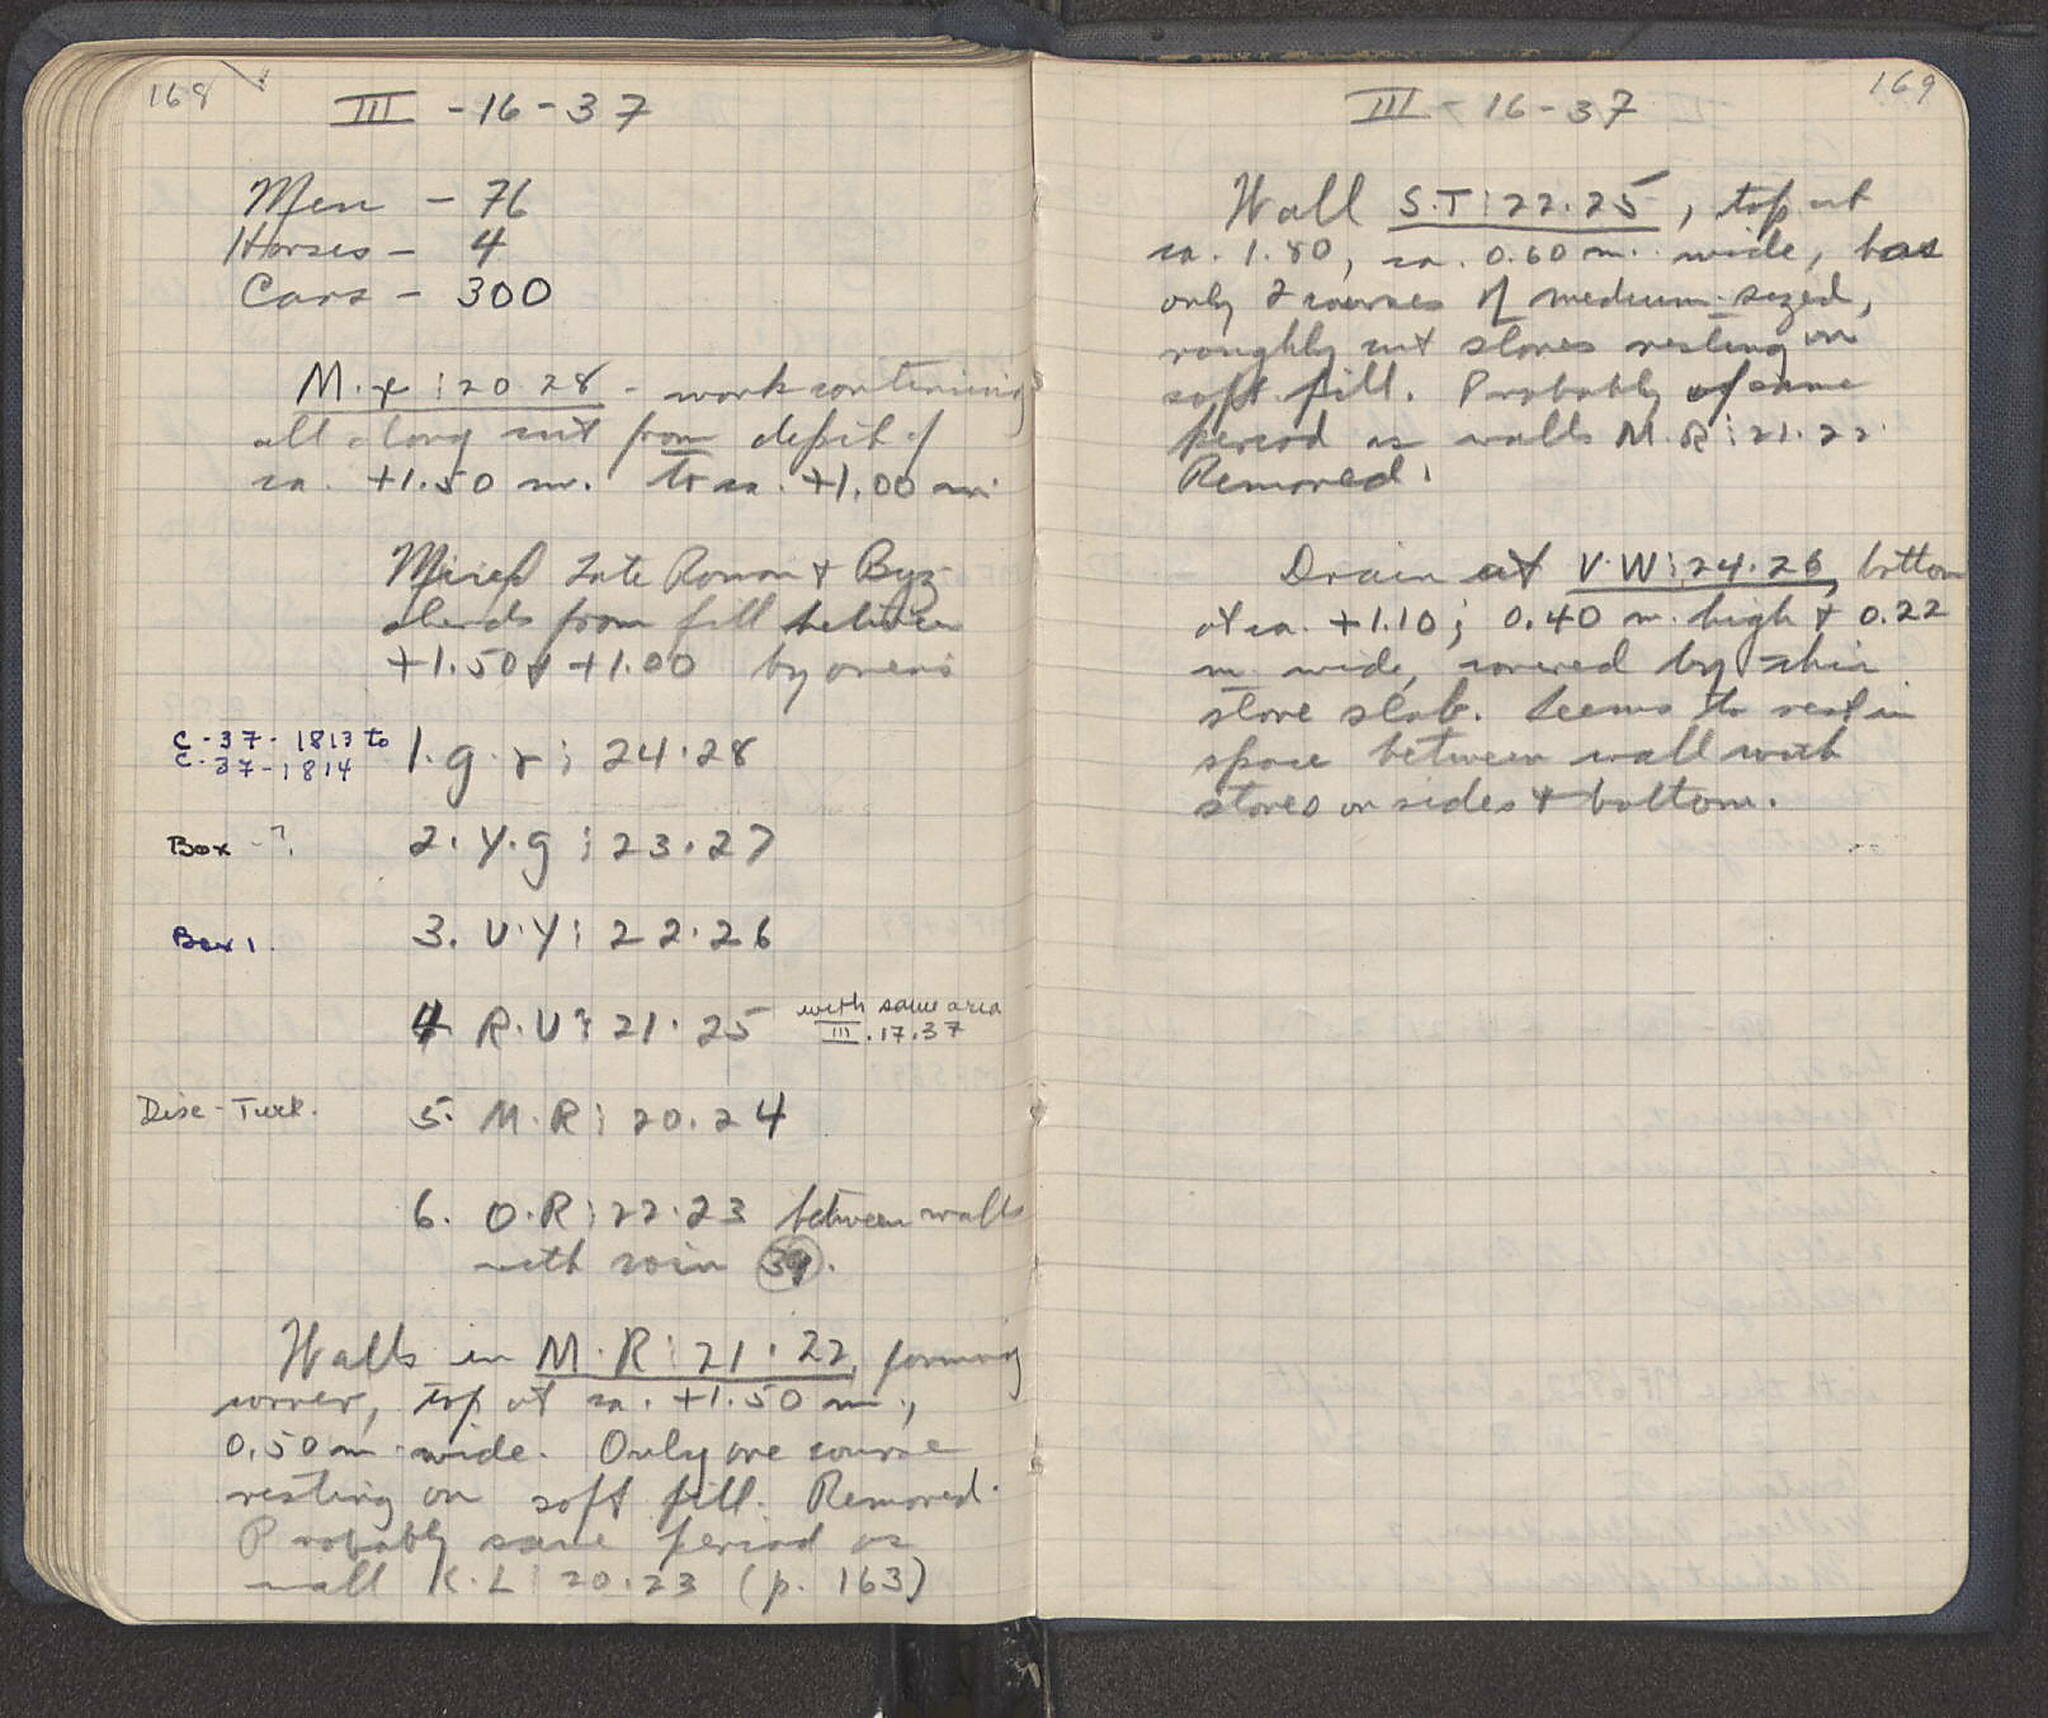 168
III - 16 - 37
Men - 76
Horses - 4
Cars - 300
M. r : 20 . 28 - work continuing
all along cut from depth of
ca. +1.50 m. to ca. +1.00 m.
Mixed Late Roman + Byz
sherds from fill between
+1.50 + +1.00 by ovens
C-37-1813 to
C-37-1814
1. g . r : 24 . 28
Box - ?
2. Y . g : 23 . 27
Box 1.
3. U . Y : 22 . 26
4. R . U : 21 . 25 with same area
III . 17 . 37
Disc - Turk.
5. M . R : 20 . 24
6. O . R : 22 . 23 between walls
with coin 39.
Walls in M . R : 21 . 22, forming
corner, top at ca. +1.50 m.,
0.50 m wide. Only one course
resting on soft fill. Removed.
Probably same period as
wall K . L : 20 . 23 (p. 163)
169
III - 16 - 37
Wall S . T : 22 . 25, top at
ca. 1.80, ca. 0.60 m. wide, has
only 2 courses of medium-sized,
roughly cut stones resting on
soft fill. Probably of same
period as walls M . R : 21 . 22
Removed.
Drain at V . W : 24 . 26, bottom
at ca. +1.10; 0.40 m. high + 0.22
m wide, covered by thin
stone slab. Seems to rest in
space between wall with
stones on sides + bottom.